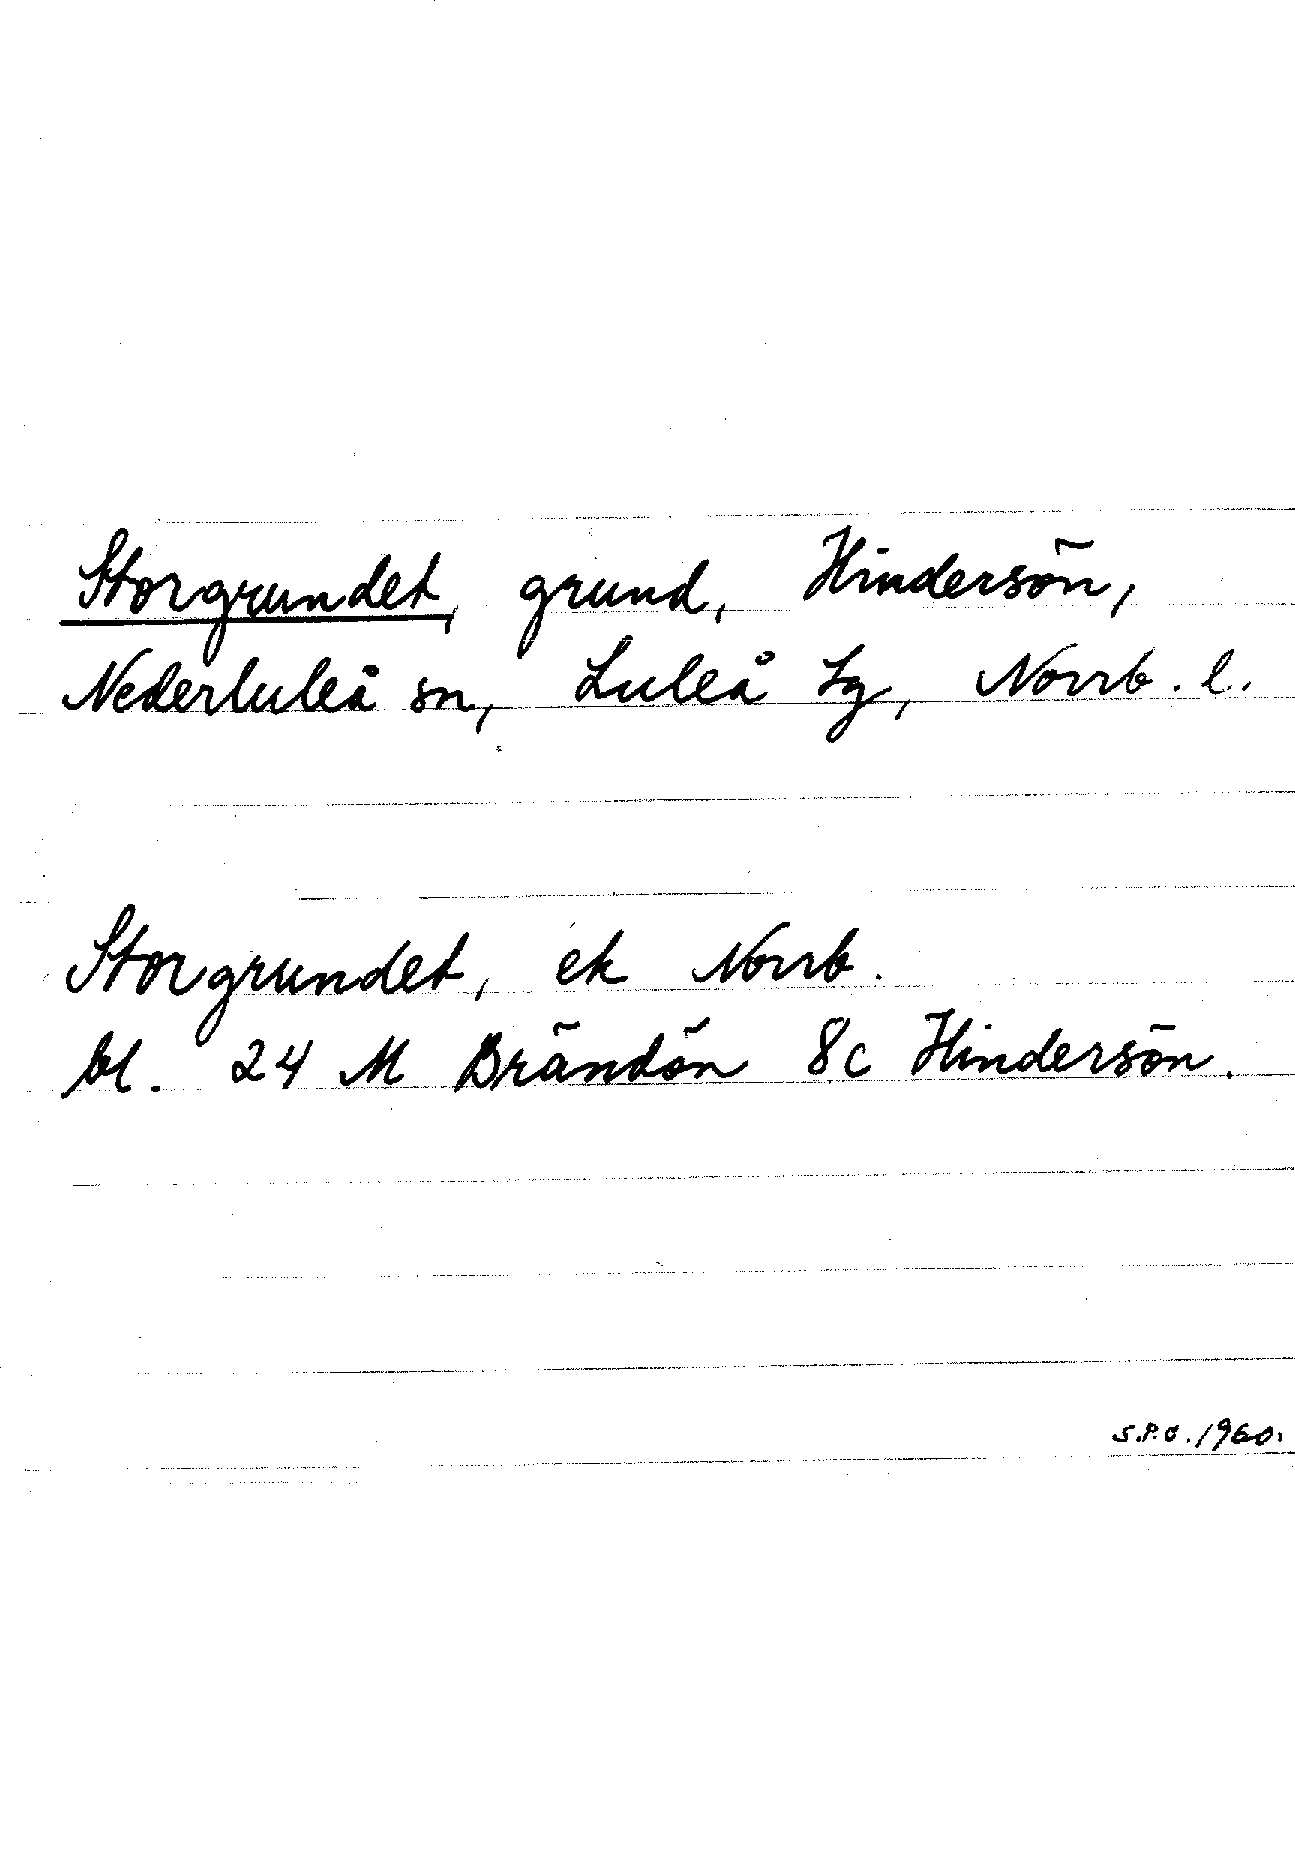 Storgrundet, grund, Hindersön,
Nederluleå sn, Luleå tg, Norrb. l.
Storgrundet, ek Norrb.
bl. 24 M Brändön 8c Hindersön.
S.P.O. 1960.